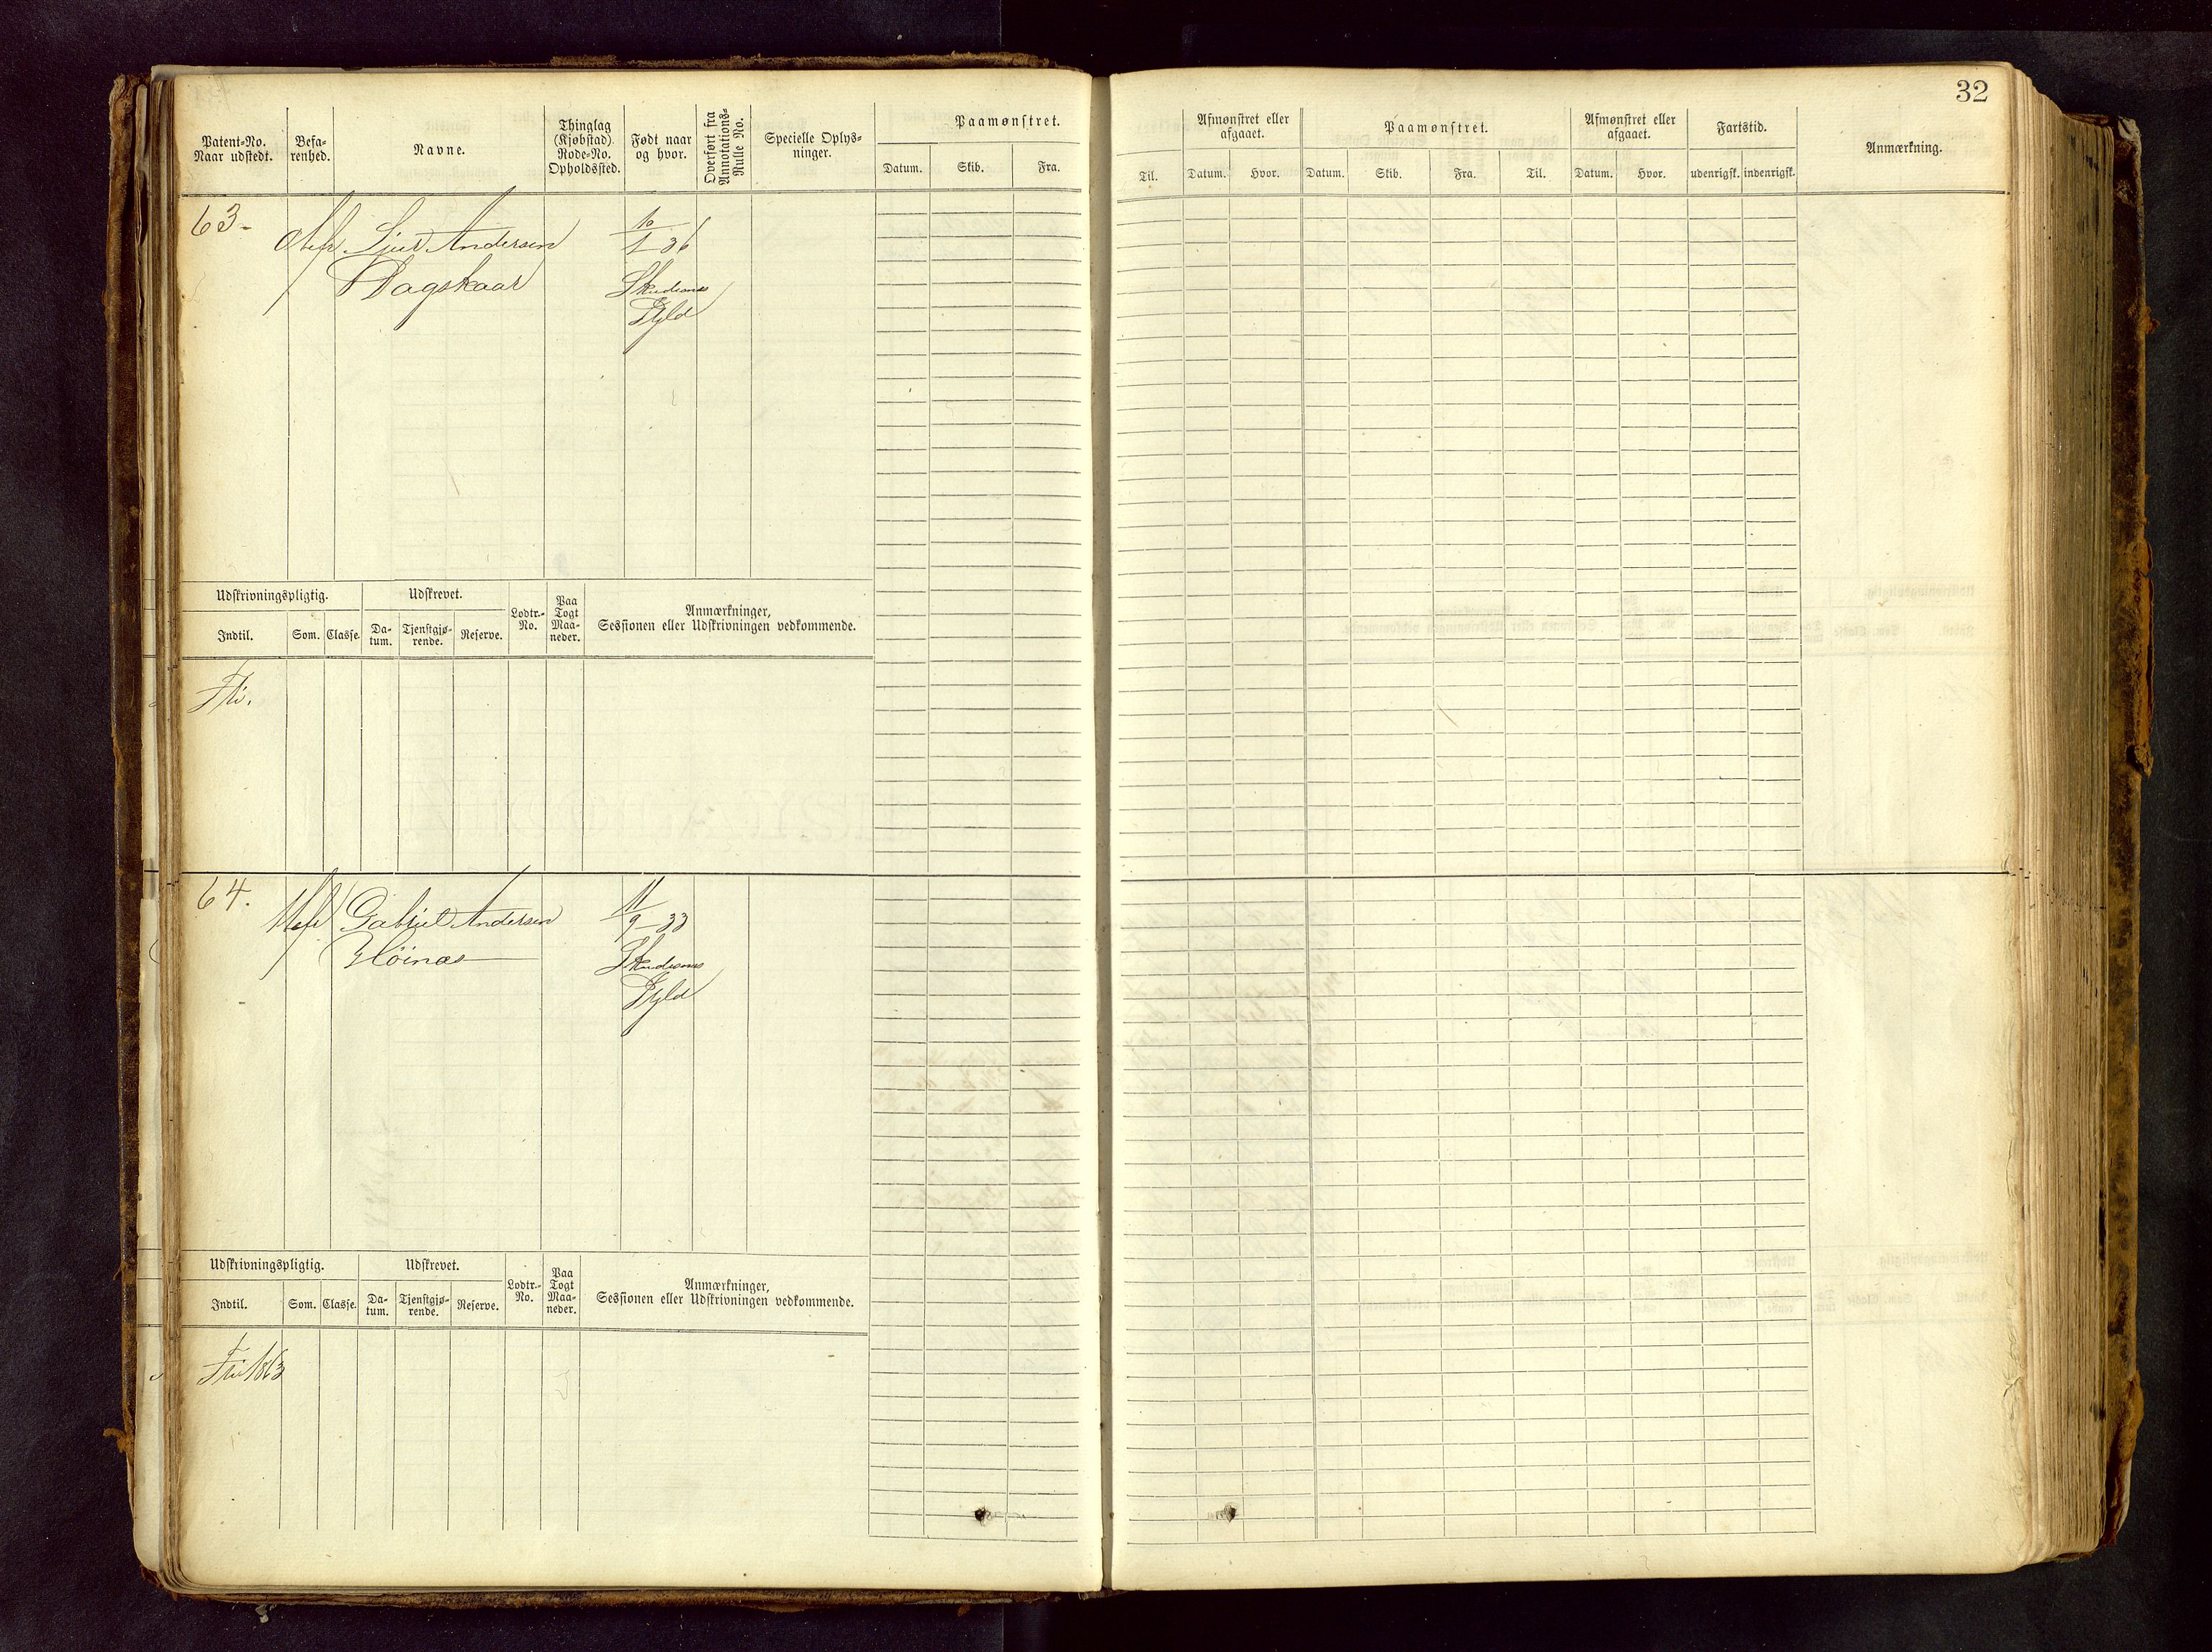 32
Patent-No.
Naar udstedt.
Befa-
renhed.
Navne.
Thinglag
(Kjøbstad)
Rode-No.
Opholdssted.
Født naar
og hvor.
Overført fra
Annotations-
Rulle No.
Specielle Oplys-
ninger.
Paamønstret.
Datum. Skib. Fra.
Til.
Afmønstret eller
afgaaet.
Datum. Hvor.
Paamønstret.
Datum. Skib. Fra. Til.
Afmønstret eller
afgaaet.
Datum. Hvor.
Fartstid.
udenrigsk. indenrigsk.
Anmærkning.
63-
Andersen
Dagskaar
10
1-36
Skudesnes
Udskrivningspligtig.
Indtil. Som. Classe.
Udskrevet.
Da-
tum.
Tjenstgjø-
rende.
Reserve.
Lodtr.-
No.
Paa
Togt
Maa-
neder.
Anmærkninger,
Sessionen eller Udskrivningen vedkommende.
Fri.
64.
Gabriel Andersen
Høines
11
9-33
Skudesnes
Udskrivningspligtig.
Indtil. Som. Classe.
Udskrevet.
Da-
tum.
Tjenstgjø-
rende.
Reserve.
Lodtr.-
No.
Paa
Togt
Maa-
neder.
Anmærkninger,
Sessionen eller Udskrivningen vedkommende.
Fri 1863